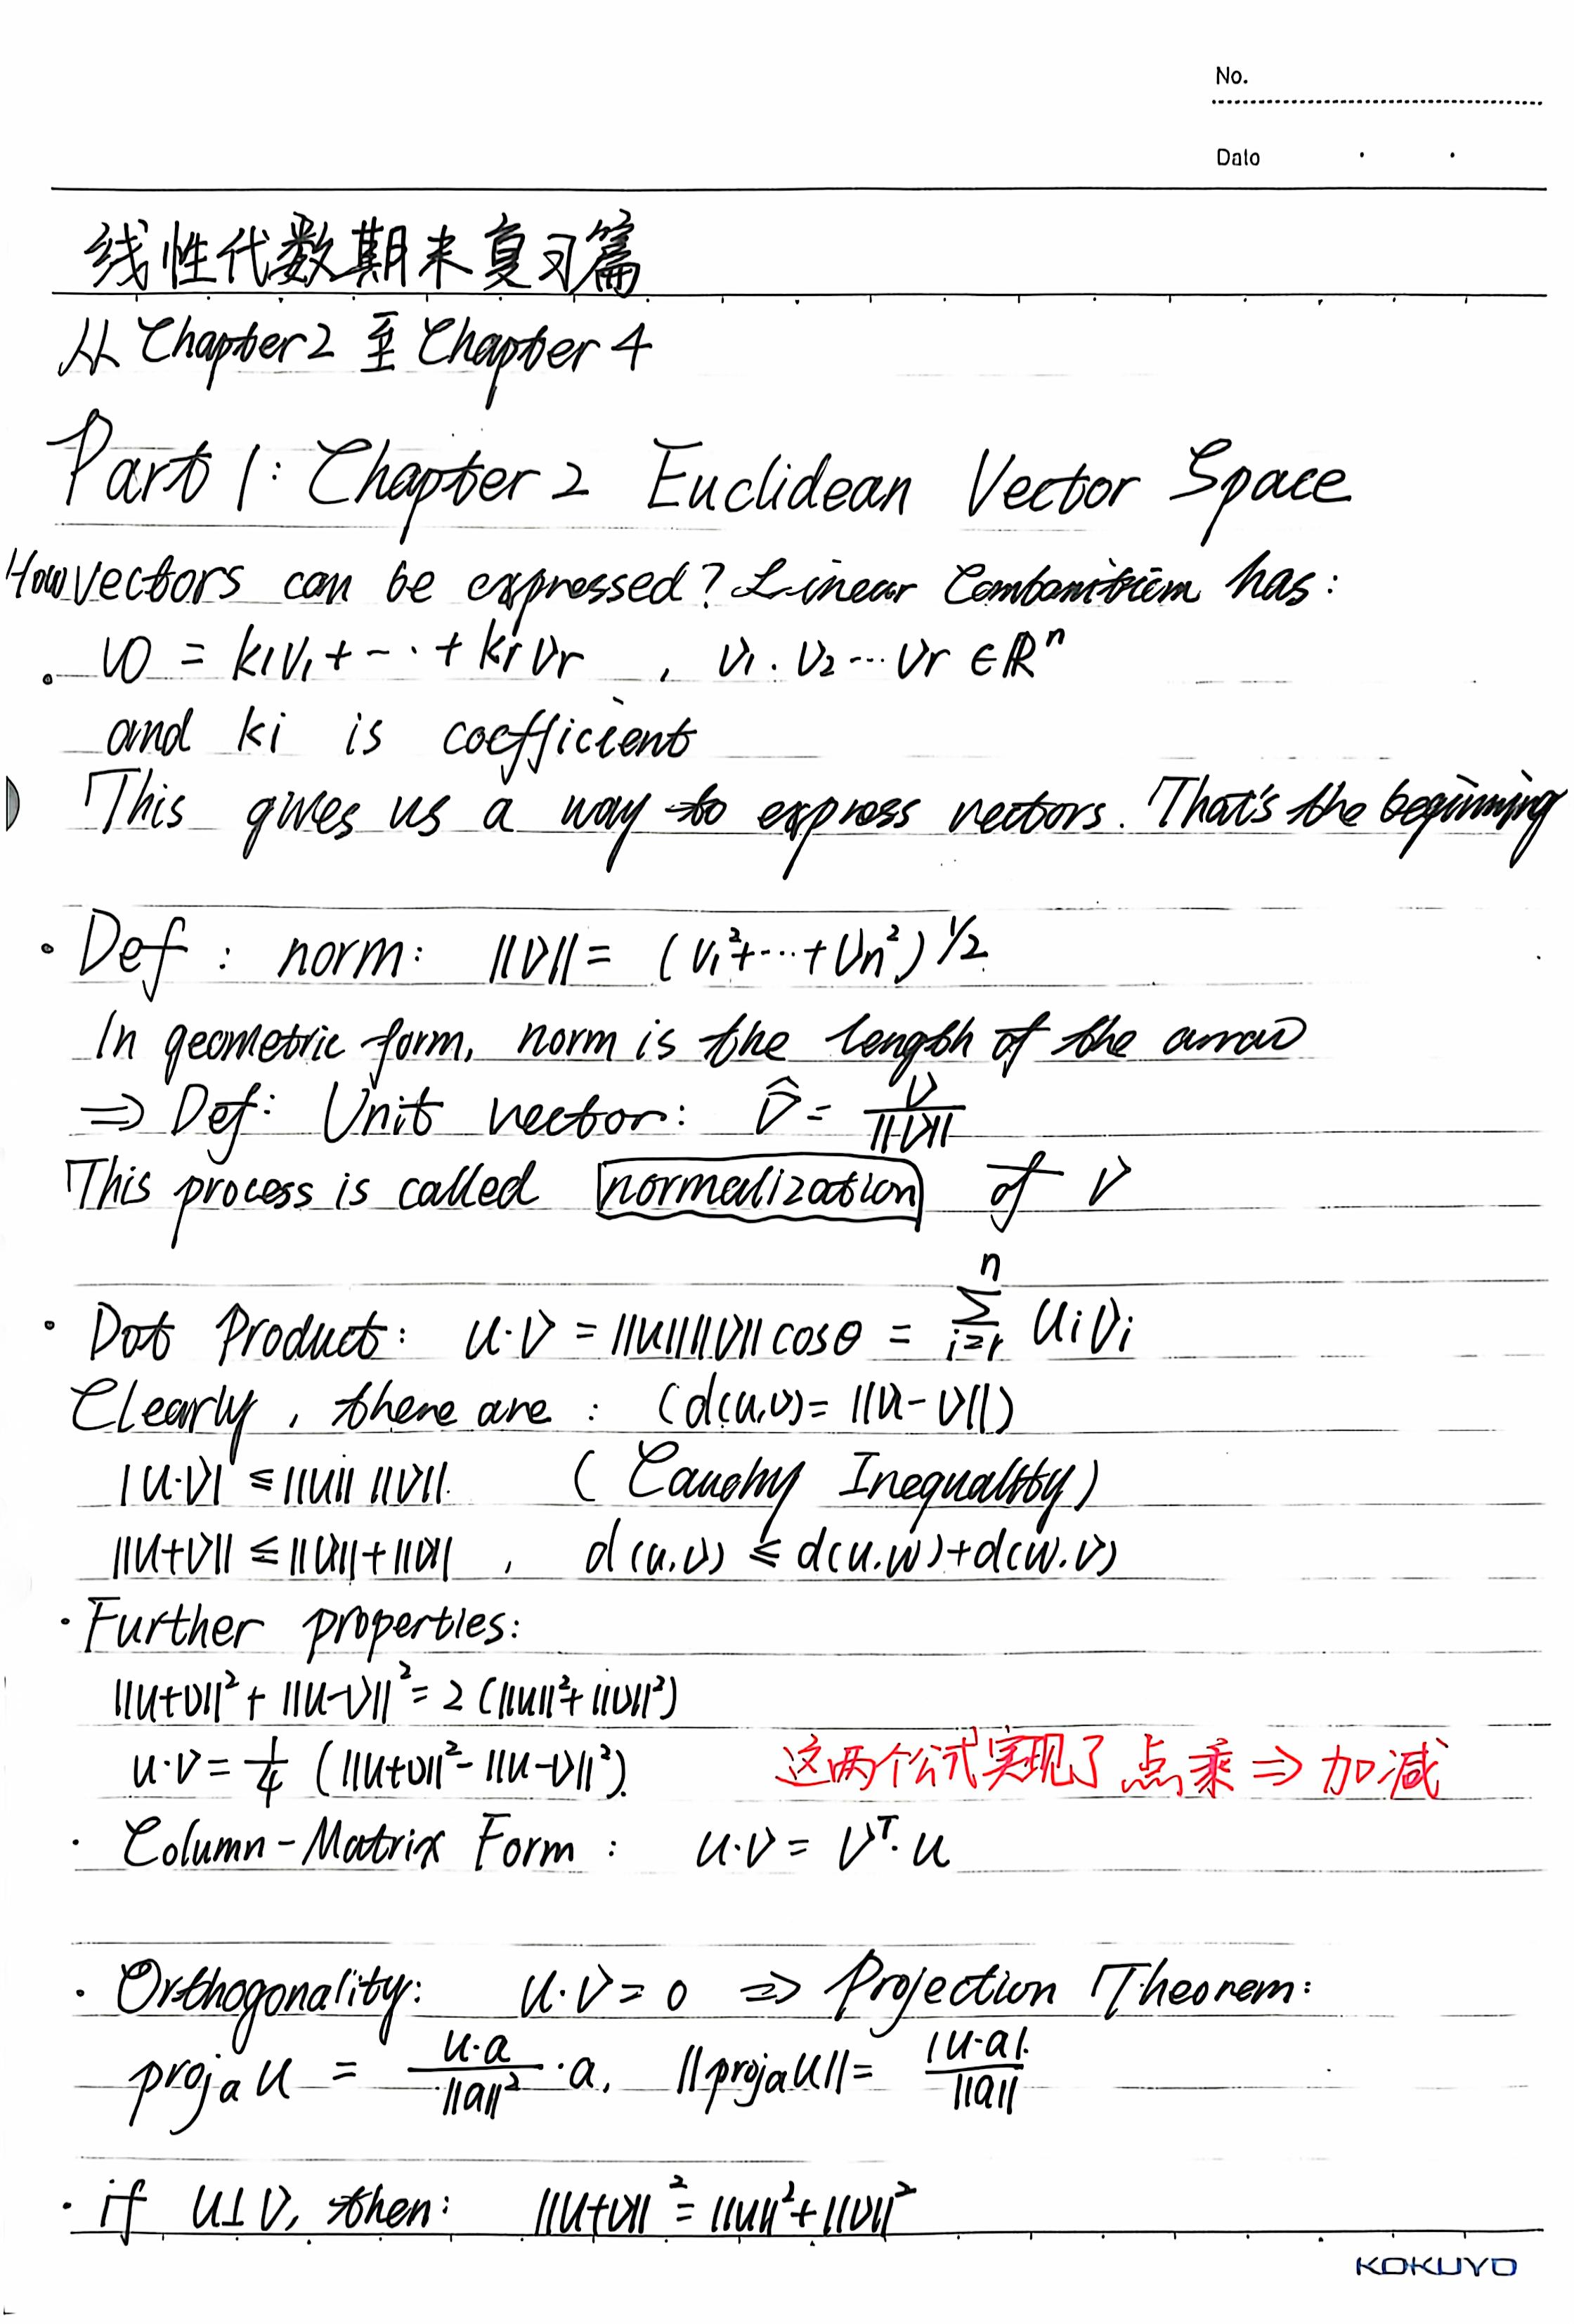 No.
Date
线性代数期末复习篇
从 Chapter 2 至 Chapter 4
Part 1: Chapter 2 Euclidean Vector Space
How vectors can be expressed? Linear Combanitiom has:
w = k1v1+-··+krvr , v1. v2···vr ∈ℝⁿ
and ki is coefficient
This gives us a way to express vectors. That's the beginning
· Def : norm: ||v||= (v1²+···+vn²)^1/2
In geometric form, norm is the length of the arrow
⇒ Def: Unit vector: v̂ = v/||v||
This process is called normalization of v
· Dot Product: u·v = ||u||||v|| cosθ = Σ_{i=1}^{n} uivi
Clearly, there are : (d(u,v)= ||u-v||)
|u·v| ≤ ||u|| ||v||. (Cauchy Inequality)
||u+v|| ≤ ||u||+||v|| , d(u,v) ≤ d(u,w)+d(w,v)
· Further properties:
||u+v||²+ ||u-v||²= 2 (||u||²+||v||²)
u·v = 1/4 (||u+v||²- ||u-v||²). 这两个公式实现了 点乘 ⇒ 加减
· Column-Matrix Form : u·v = vᵀ·u
· Orthogonality: u·v = 0 ⇒ Projection Theorem:
projₐu = u·a/||a||² ·a, ||projₐu||= |u·a|/||a||
· if u⊥v, then: ||u+v||²= ||u||²+||v||²
KOKUYO